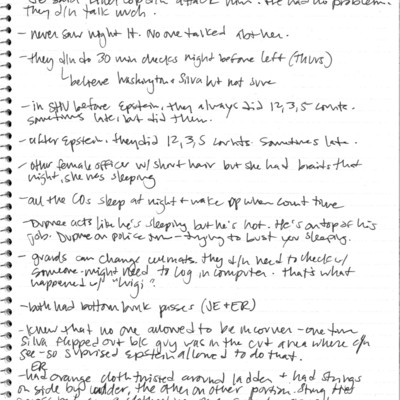 he said other cop didn attack him. He had no problem.
they d/n talk much.
- never saw night Lt. No one talked abt her.
- they d/n to 30 min checks night before left (Thurs)
believe Washington + Silva but not sure
- in SHU before Epstein, they always did 12, 3, 5 counts.
sometimes late, but did them.
- after Epstein, they did 12, 3, 5 counts. Sometimes late.
- other female officer w/ short hair but she had braids that
night, she was sleeping
- all the COs sleep at night + wake up when count time
- Dupree acts like he's sleeping but he's not. He's on top of his
job. Dupree on police – trying to bust you sleeping.
- guards can change cellmates. they d/n need to check w/
someone. might need to log in computer. that's what
happened w/ "luigi"?
- both had bottom bunk passes (JE + ER)
- knew that no one allowed to be in corner - one time
Silva flipped out b/c guy was in the cut area where c/n
see - so surprised Epstein allowed to do that.
ER
- had orange cloth twisted around ladder + had strings
on side by ladder, the other on other portion. string that